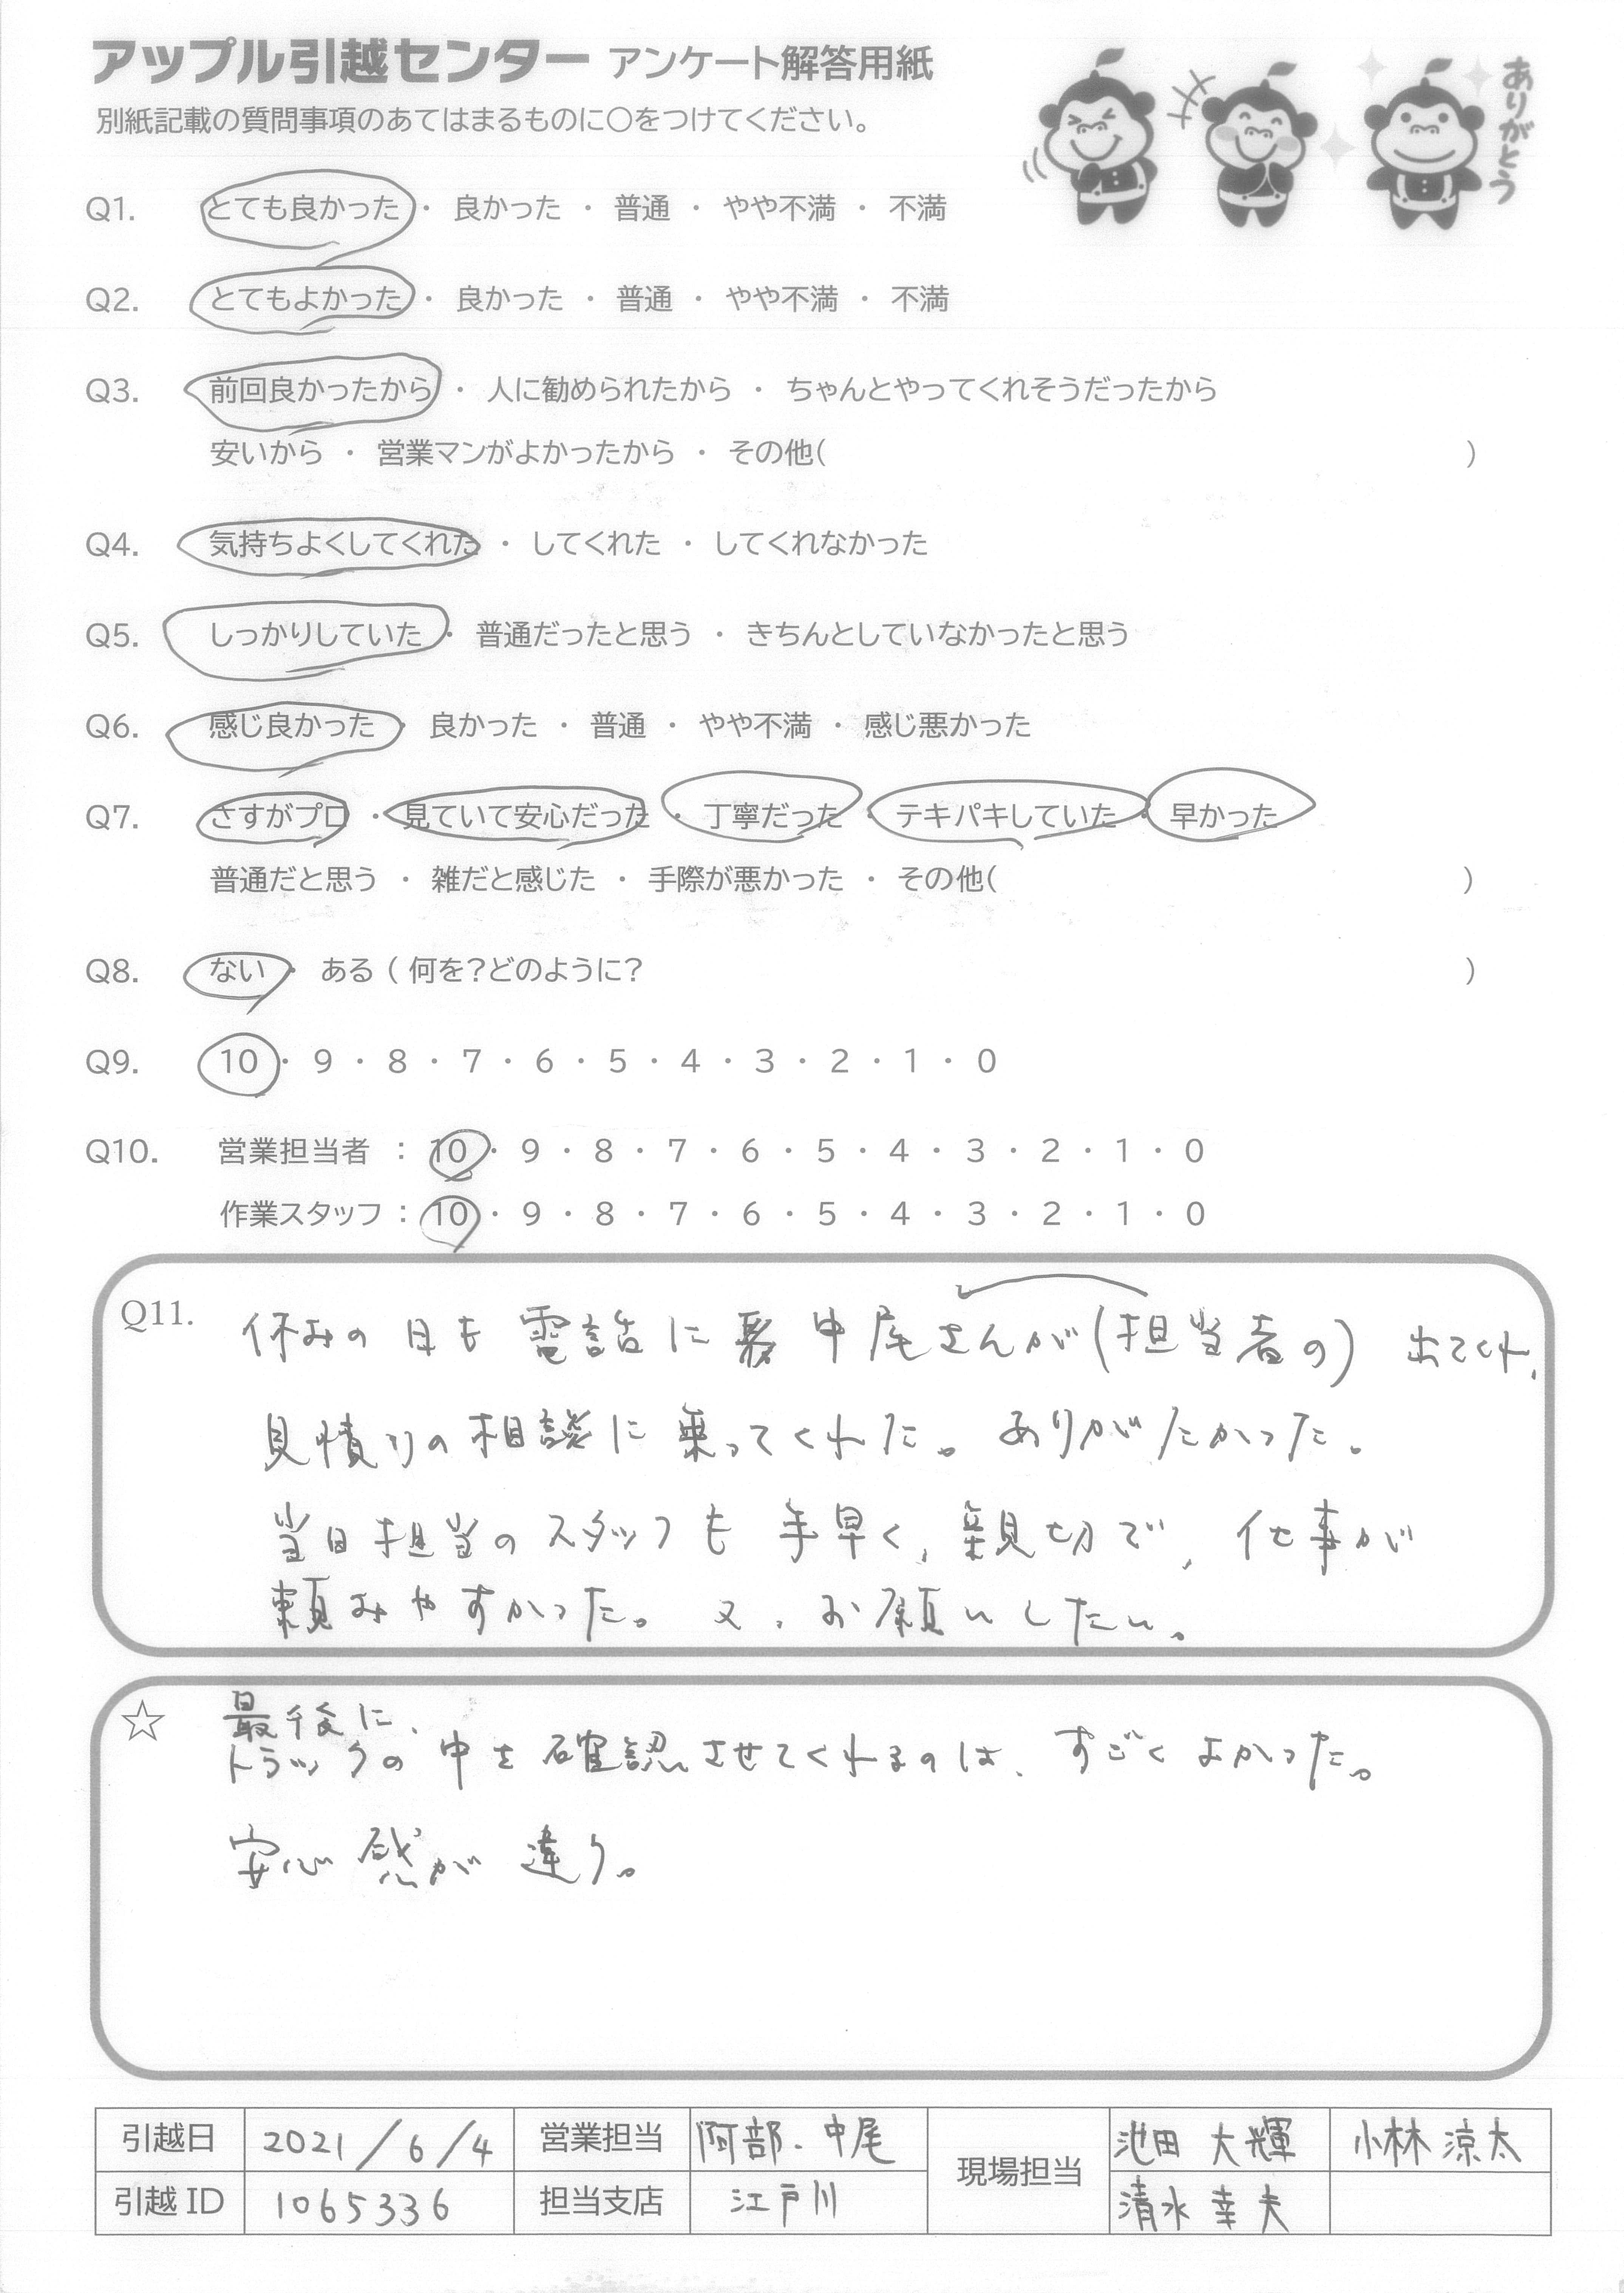 アップル引越センター アンケート解答用紙
ありがとう
別紙記載の質問事項のあてはまるものに○をつけてください。
Q1. とても良かった ・ 良かった ・ 普通 ・ やや不満 ・ 不満
Q2. とてもよかった ・ 良かった ・ 普通 ・ やや不満 ・ 不満
Q3. 前回良かったから ・ 人に勧められたから ・ ちゃんとやってくれそうだったから
安いから ・ 営業マンがよかったから ・ その他( )
Q4. 気持ちよくしてくれた ・ してくれた ・ してくれなかった
Q5. しっかりしていた ・ 普通だったと思う ・ きちんとしていなかったと思う
Q6. 感じ良かった ・ 良かった ・ 普通 ・ やや不満 ・ 感じ悪かった
Q7. さすがプロ ・ 見ていて安心だった ・ 丁寧だった ・ テキパキしていた ・ 早かった
普通だと思う ・ 雑だと感じた ・ 手際が悪かった ・ その他( )
Q8. ない ・ ある ( 何を?どのように? )
Q9. 10 ・ 9 ・ 8 ・ 7 ・ 6 ・ 5 ・ 4 ・ 3 ・ 2 ・ 1 ・ 0
Q10. 営業担当者 : 10 ・ 9 ・ 8 ・ 7 ・ 6 ・ 5 ・ 4 ・ 3 ・ 2 ・ 1 ・ 0
作業スタッフ : 10 ・ 9 ・ 8 ・ 7 ・ 6 ・ 5 ・ 4 ・ 3 ・ 2 ・ 1 ・ 0
Q11. 休みの日も電話に 中尾さんが(担当者の) 出てくれ、
見積りの相談に乗ってくれた。ありがたかった。
当日担当のスタッフも手早く、親切で、仕事が
頼みやすかった。又、お願いしたい。
☆ 最後に、
トラックの中を確認させてくれるのは、すごくよかった。
安心感が違う。
引越日 2021/6/4 営業担当 阿部・中尾 現場担当 池田 大輝 小林 涼太
引越ID 1065336 担当支店 江戸川 清水 幸夫